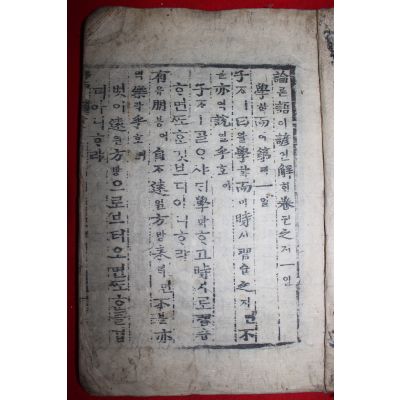 論론語어諺언解ᄒᆡ卷권之지一일
學ᄒᆞᆨ而이第뎨一일
子ᄌᆞㅣ曰왈學ᄒᆞᆨ而이時시習습之지면不
亦역說열乎호아
子ᄌᆞㅣᄀᆞᆯᄋᆞ샤ᄃᆡ學ᄒᆞᆨᄒᆞ고時시로習습
ᄒᆞ면ᄯᅩᄒᆞᆫ깃브디아니ᄒᆞ랴
有유朋붕이自ᄌᆞ遠원方방來ᄅᆡ면不블亦
역樂락乎호아
벗이遠원方방으로브터오면ᄯᅩᄒᆞᆫ즐겁
디아니ᄒᆞ랴